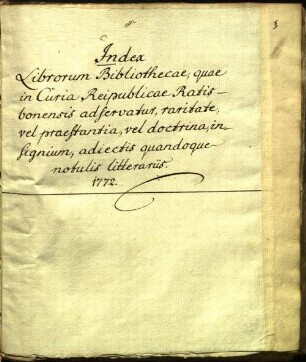 1
Index
Librorum Bibliothecae, quae
in Curia Reipublicae Ratis-
bonensis adservatur, raritate,
vel praestantia, vel doctrina, in-
signium, adiectis quandoque
notulis litterariis.
1772.